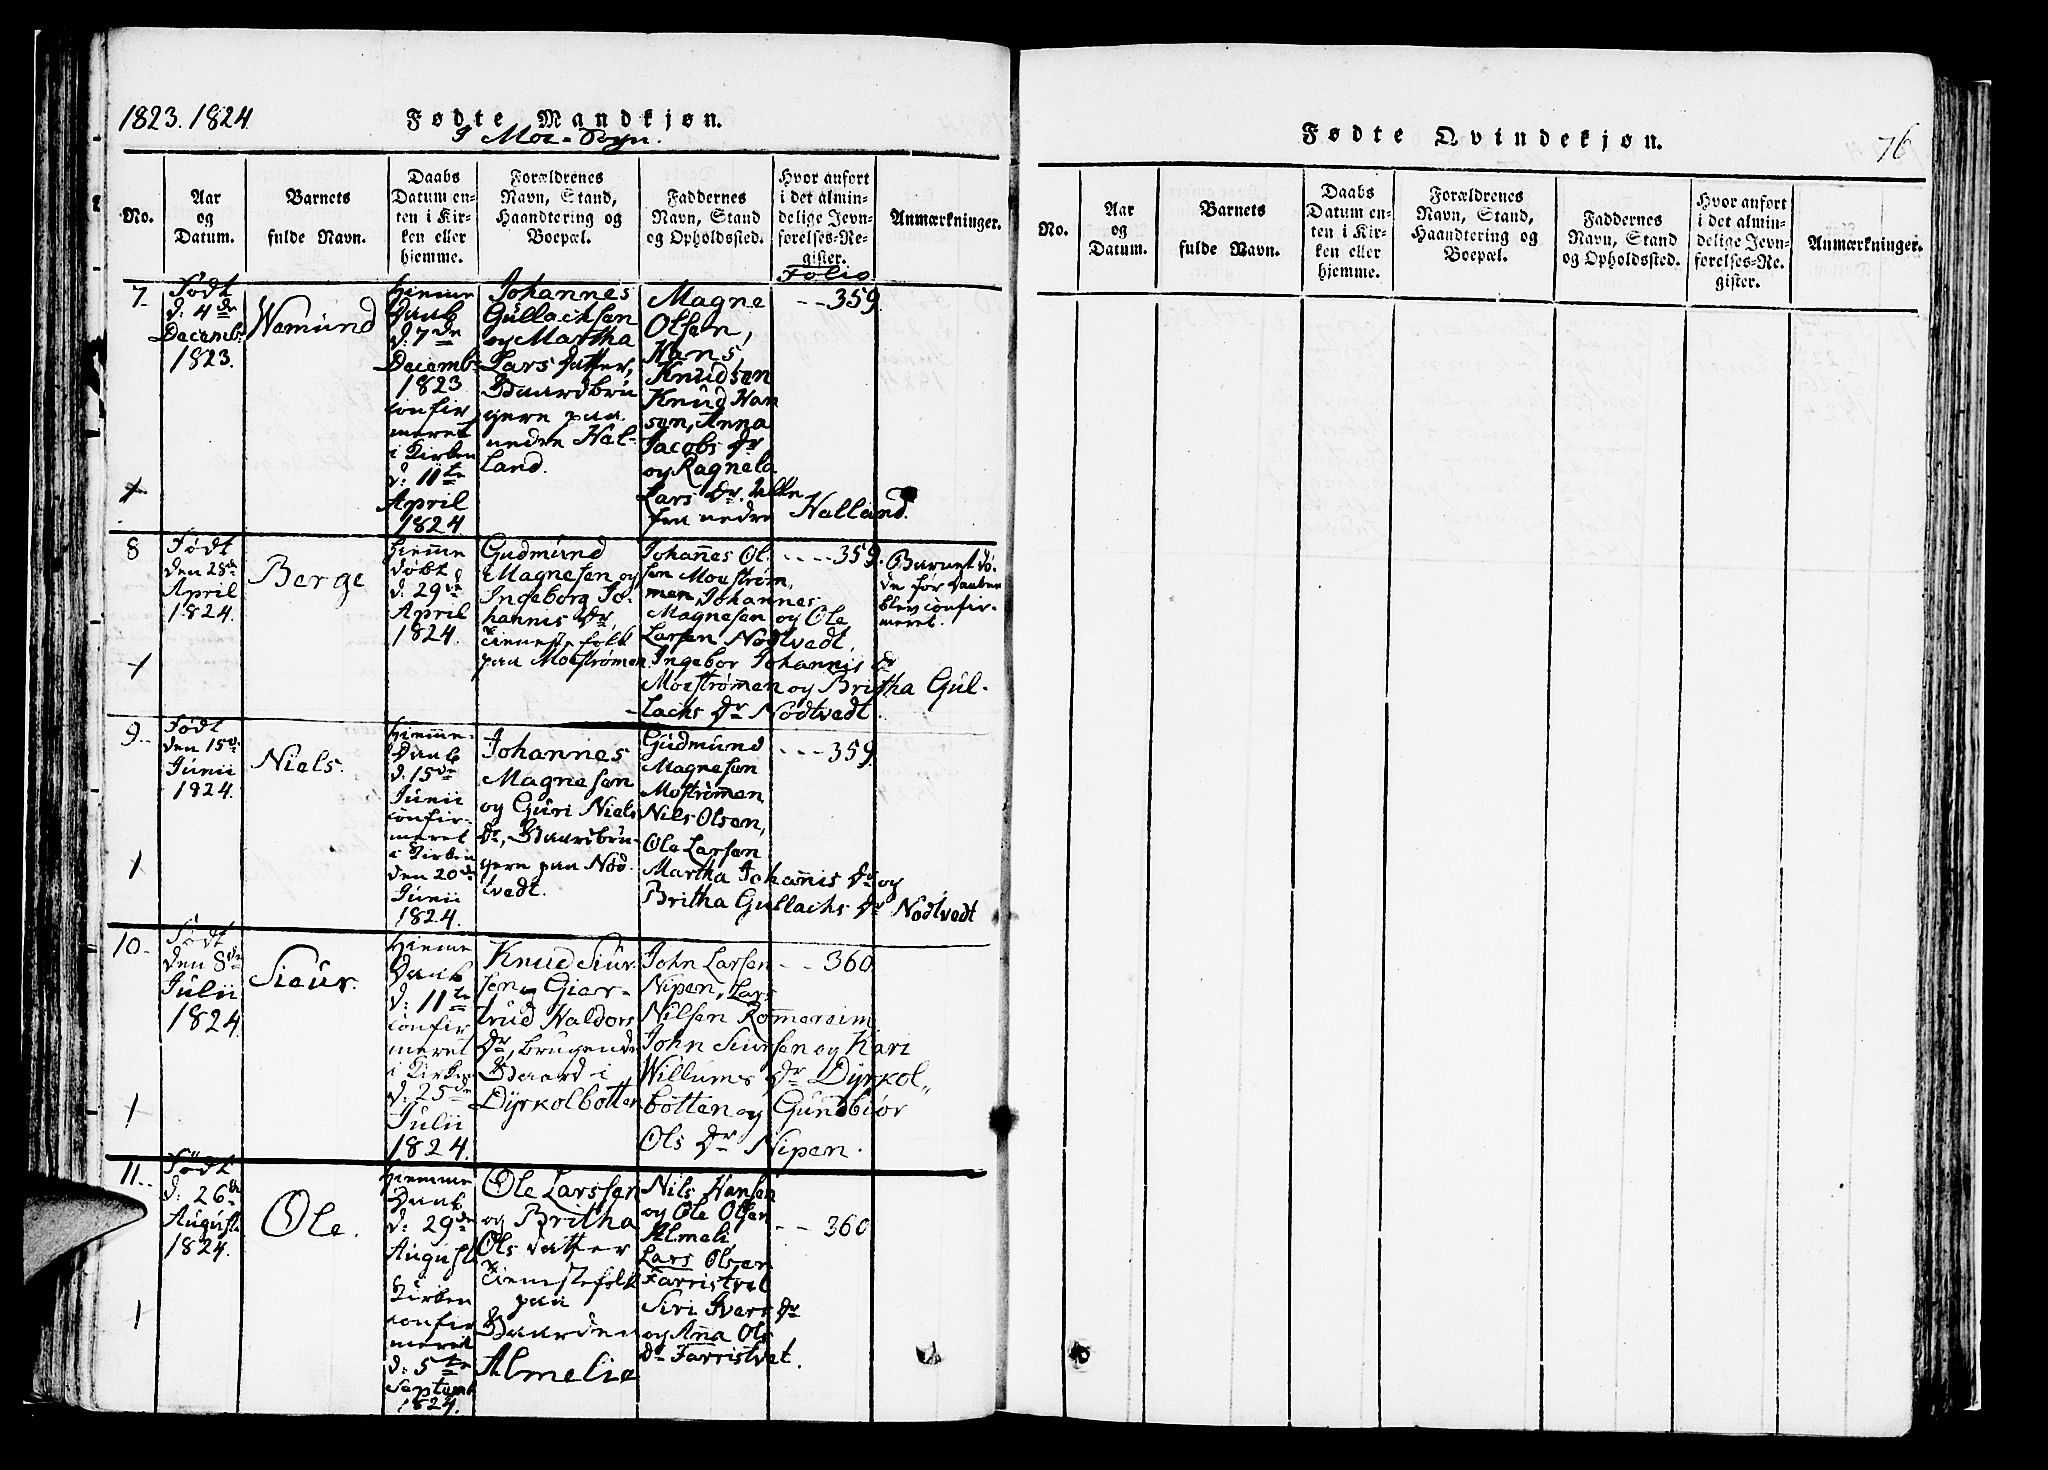 1823. 1824.
Fødte Mandkjøn.
I Moe-Sogn.
No.
Aar
og
Datum.
Barnets
fulde Navn.
Daabs
Datum en-
ten i Kir-
ken eller
hjemme.
Forældrenes
Navn, Stand,
Haandtering og
Boepæl.
Faddernes
Navn, Stand
og Opholdssted.
Hvor anført
i det almin-
delige Jevn-
førelses-Re-
gister.
Folio
Anmærkninger.
7-
Født
d: 4de
Decemb:
1823.
Wemund
hieme
Daab
d. 7de
Decemb:
1823
confir
meret
i Kirken
d: 11te
April
1824
Johannes
Gullachsen
og Martha
Lars Datter,
Gaardbru
gere paa
nedre Hal-
land.
Magne
Olsen,
Hans
Knudsen
Knud Han
sen, Anna
Jacobs Dr
og Ragnela
Lars Dr. alle
fra nedre Halland.
---359.
1
8
Født
den 28de
April
1824.
Berge
hieme
døbt
d: 29de
April
1824.
Gudmund
Magnesen og
Ingeborg Jo-
hannis Dr,
Tienestefolk
paa Moestrømen.
Johannes Ol-
sen Moestrøm-
men, Johannes
Magnesen og Ole
Larsen Nødtvedt,
Ingebor Johannis Dr
Moestrømen og Britha Gul-
lachs Dr Nødtvedt.
----359.
Barnet dø-
de før Daaben
blev confir-
meret.
1
9-
Født
den 15de
Junii
1824.
Niels.
hieme-
Daab
d. 15de
Junii
confir-
meret
i Kirken
den 20de
Junii
1824.
Johannes
Magnesen
og Guri Niels
Dr, Gaardbru-
gere paa Nød-
tvedt.
Gudmund
Magnesen
Mostrømen
Nils Olsen,
Ole Larsen
Martha Johannis Dr og
Britha Gullachs Dr Nødtvedt
----359.
1
10-
Født
den 8de
Julii
1824.
Siour.
hieme
Daab
d: 11te
confir
meret
i Kirken
d. 25de
Julii
1824.
Knud Siur-
sen og Gier-
trud Haldors
Dr, brugende
Gaard i
Dyrkolbotten
John Larsen
Nipen, Lars
Nilsen Romereim
John Siursen og Kari
Willums Dr Dyrkol-
botten og Gundbiør
Ols Dr Nipen.
---360.
1
11-
Født
d: 26de
August
1824.
Ole.
hiemme
Daab
d: 29de
August
Kirken
confir
meret
d: 5te
Septemb
1824.
Ole Larssen
og Britha
Ols datter
Tienestefolk
paa
Gaarden
Almelie
Nils Hansen
og Ole Olsen
Almeli,
Lars Olsen
Farristvet
Siri Ivers Dr
og Anna Ols
Dr Farristvet.
--360.
1
Fødte Qvindekjøn.
76
No.
Aar
og
Datum.
Barnets
fulde Navn.
Daabs
Datum en-
ten i Kir-
ken eller
hjemme.
Forældrenes
Navn, Stand,
Haandtering og
Boepæl.
Faddernes
Navn, Stand
og Opholdssted.
Hvor anført
i det almin-
delige Jevn-
førelses-Re-
gister.
Anmærkninger.